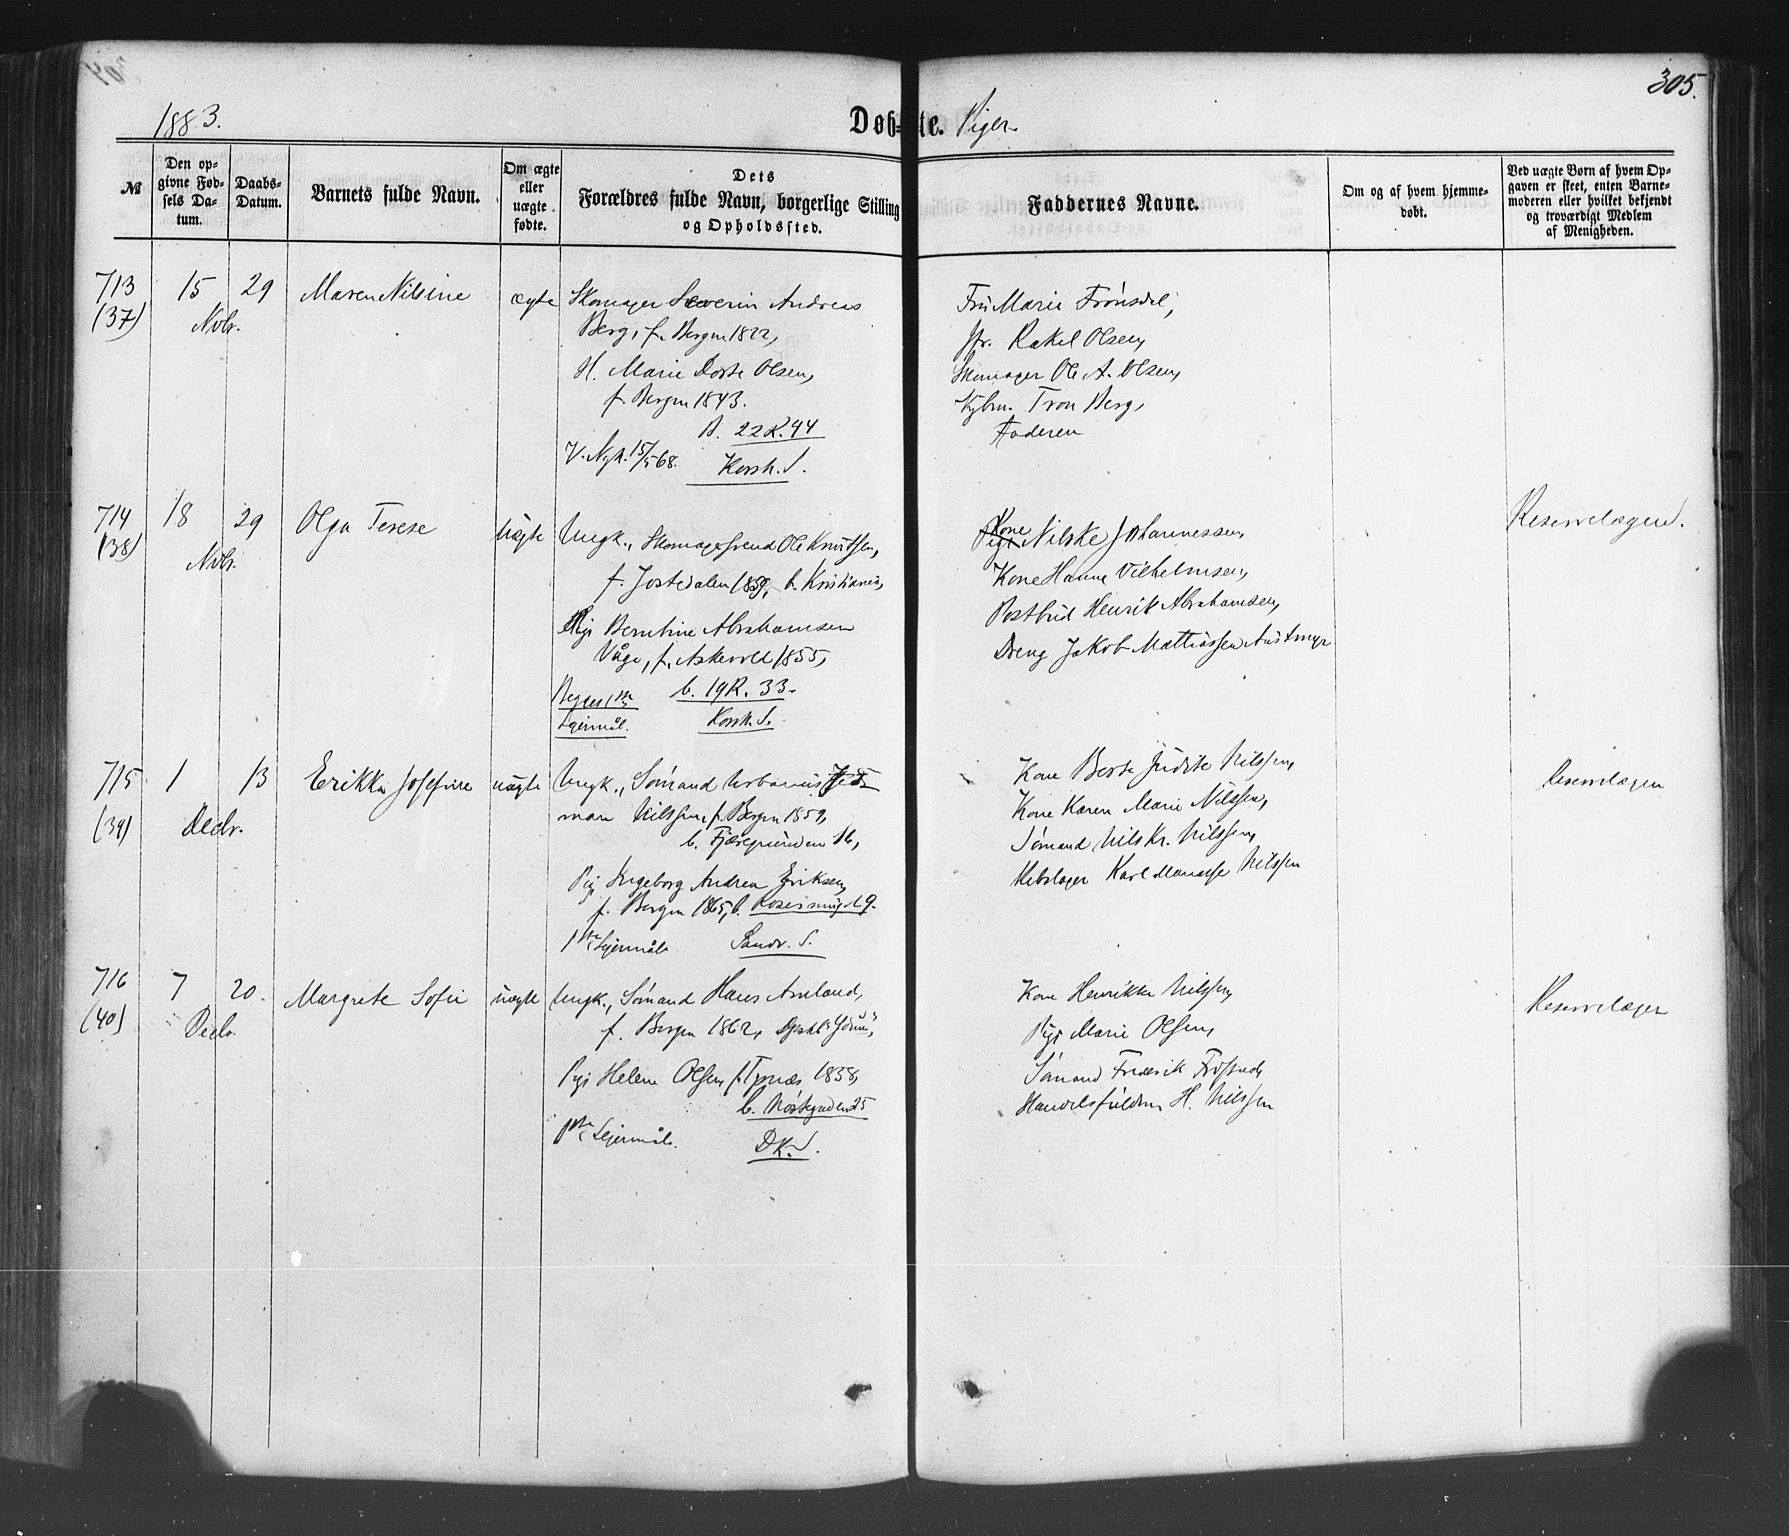 305.
1883.
Døb-te. Piger
№
Den opgivne Fødsels Datum.
Daabs-Datum.
Barnets fulde Navn.
Om ægte eller uægte fødte.
Dets Forældres fulde Navn, borgerlige Stilling og Opholdssted.
Faddernes Navne.
Om og af hvem hjemmedøbt.
Ved uægte Børn af hvem Opgaven er skeet, enten Barnemoderen eller hvilket bekjendt og troværdigt Medlem af Menigheden.
713 15 29 Maren Nilsine ægte Skomager Severin Andreas
(37) Nvbr.
Berg, f. Bergen 1822,
H. Marie Dorte Olsen,
f. Bergen 1843.
22R. 44
V. Nyk. 15/5 68. Korsk. S.
Fru Marie Frønsdal,
Jfr. Rakel Olsen,
Skomager Ole A. Olsen,
Tron Berg,
Faderen
714 18 29 Olga Terese uægte Ungk., Skomagersvend Ole Knutsen,
(38) Nvbr.
f. Jostedalen 1859, b. Kristiania,
Pige Berntine Abrahamsen
Våge, f. Askevold 1855,
Begges 1ste b. 19R. 33.
Lejermål. Korsk. S.
Kone Nilske Johannessen,
Kone Hanne Vilhelmsen,
Postbud Henrik Abrahamsen,
Dreng Jakob Mathiassen Austmyr
Reservelægen.
715 1 13 Erikka Josefine uægte Ungk., Sømand Urbanus
(39) Decbr.
man Nilssen, f. Bergen 1859,
b. Fjæregrunden 16,
Pig Ingeborg Andrea Eriksen,
f. Bergen 1865, b. 19.
1ste Lejermål. Sandv. S.
Kone Berte Judite Nilssen,
Kone Karen Marie Nilssen,
Sømand Nils Kr. Nilssen,
Rebslager Karl Manasse Nilssen
Reservelægen
716 7 20. Margrete Sofie uægte Ungk., Sømand Hans Amland,
(40) Decbr.
f. Bergen 1862,
Pige Helene Olsen, f. Tysnæs 1858,
b. Nøstegaden 25
1ste Lejermål. DK. S.
Kone Henrikke Nilssen,
Pige Marie Olsen,
Sømand Frederik
Handelsfuldm. H. Nilssen
Reservelægen